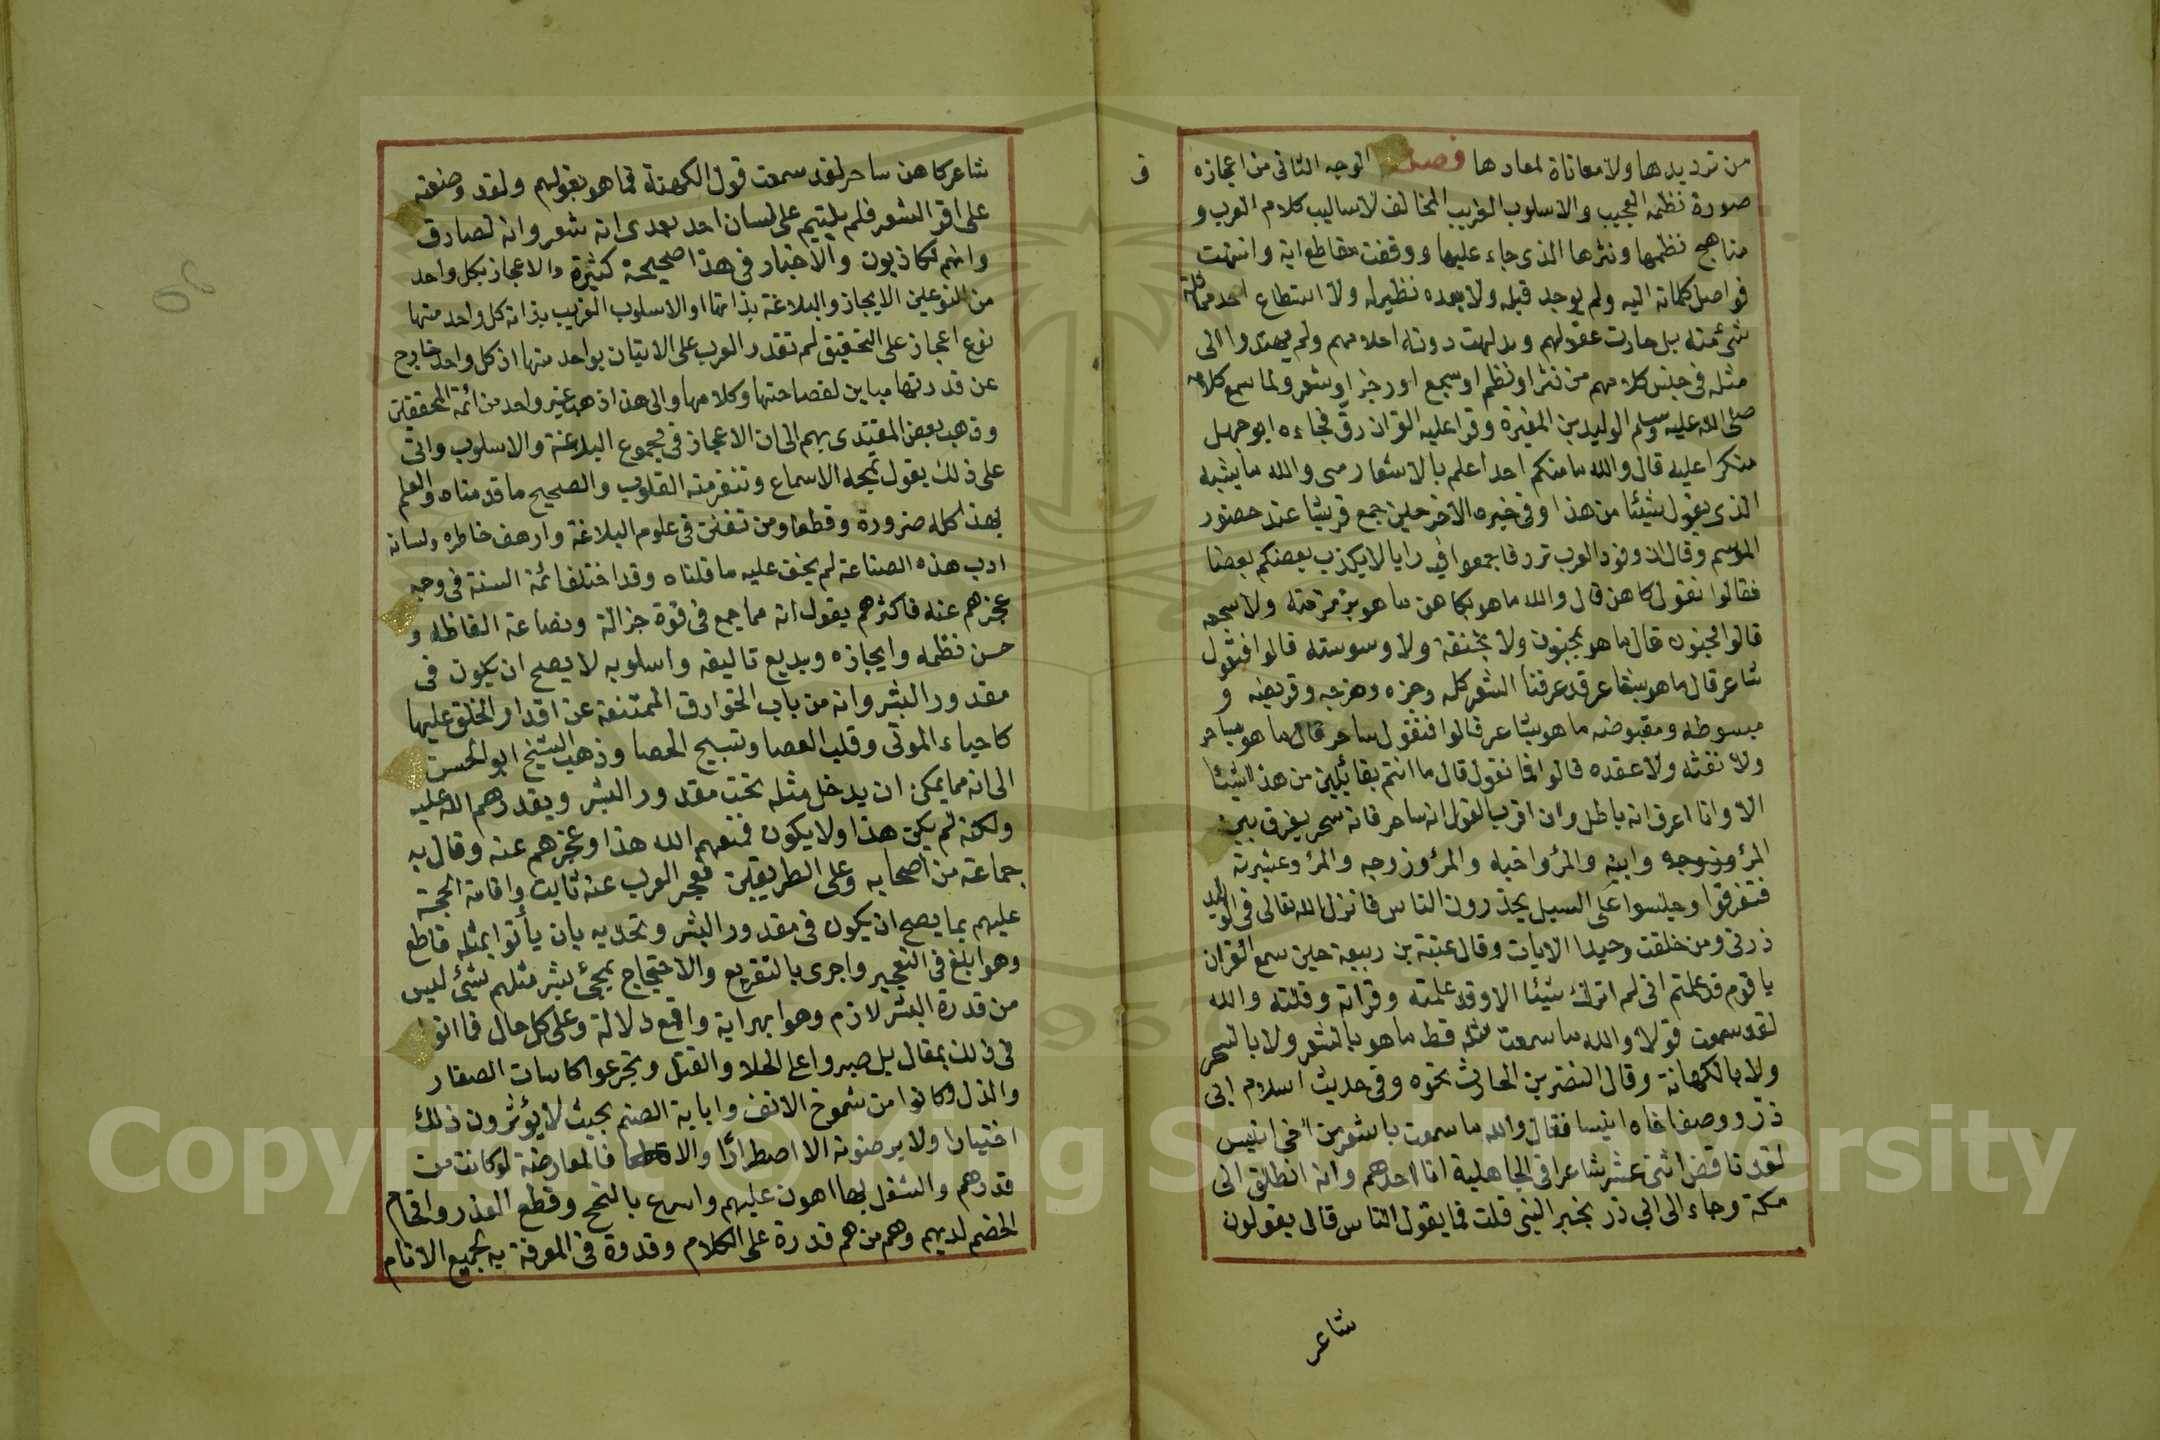 من ترديدها ولا معاناة لمعادها فصل الوجه الثانى من اعجازه
صورة نظمه العجيب والاسلوب الغريب المخالف لاساليب كلام العرب و
مناهج نظمها ونثرها الذى جاء عليها ووقفت مقاطع اية وانتهت
فواصل كلماته اليه ولم يوجد قبله ولا بعده نظير له ولا استطاع احد مماثلة
شئ منه بل حارت عقولهم وتدلهت دونه احلامهم ولم يهتدوا الى
مثله فى جنس كلامهم من نثر او نظم او سجع او رجز او شعر ولما سمع كلامه
صلى الله عليه وسلم الوليد بن المغيرة وقرا عليه القران رق فجاءه ابو جهل
منكرا عليه قال والله ما منكم احد اعلم بالاشعار منى والله ما يشبه
الذى يقول شيئا من هذا وفى خبره الاخر حين جمع قريشا عند حضور
الموسم وقال ان وفود العرب ترد فاجمعوا فيه رايا لا يكذب بعضكم بعضا
فقالوا نقول كاهن قال والله ما هو بكاهن ما هو بزمزمته ولا سجعه
قالوا مجنون قال ما هو بمجنون ولا بخنقه ولا وسوسته قالوا فنقول
شاعر قال ما هو بشاعر قد عرفنا الشعر كله رجزه وهزجه وقريضه و
مبسوطه ومقبوضه ما هو بشاعر قالوا فنقول ساحر قال ما هو بساحر
ولا نفثه ولا عقده قالوا فما نقول قال ما انتم بقائلين من هذا شيئا
الا وانا اعرف انه باطل وان اقرب القول انه ساحر فانه سحر يفرق بين
المرؤ وزوجه وابنه والمرؤ واخيه والمرؤ وزوجه والمرؤ وعشيرته
فتفرقوا وجلسوا على السبل يحذرون الناس فانزل الله تعالى فى الوليد
ذرنى ومن خلقت وحيدا الايات وقال عتبة بن ربيعة حين سمع القران
يا قوم قد علمتم انى لم اترك شيئا الا وقد علمته وقراته وقلته والله
لقد سمعت قولا والله ما سمعت مثله قط ما هو بالشعر ولا بالسحر
ولا بالكهانة وقال النضر بن الحارث نحوه وفى حديث اسلام ابى
ذر ووصف اخاه انيسا فقال والله ما سمعت باشعر من اخى انيس
لقد ناقض اثنى عشر شاعرا فى الجاهلية انا احدهم وانه انطلق الى
مكة وجاء الى ابى ذر بخبر النبى قلت فما يقول الناس قال يقولون
شاعر
ف
شاعر كاهن ساحر لقد سمعت قول الكهنة فما هو بقولهم ولقد وضعته
على اقر الشعر فلم يلتيم على لسان احد بعدى انه شعر وانه لصادق
وانهم لكاذبون والاخبار فى هذا صحيحة كثيرة والاعجاز بكل واحد
من النوعين الايجاز والبلاغة بذاتها او الاسلوب الغريب بذاته كل واحد منها
نوع اعجاز على التحقيق لم تقدر العرب على الاتيان بواحد منها اذ كل واحد خارج
عن قدرتها مباين لفصاحتها وكلامها والى هذا ذهب غير واحد من ائمة المحققين
وذهب بعض المقتدى بهم الى ان الاعجاز فى مجموع البلاغة والاسلوب واتى
على ذلك بقول تمجه الاسماع وتنفر منه القلوب والصحيح ما قدمناه والعلم
بهذا كله ضرورة وقطعا ومن تفنن فى علوم البلاغة وارهف خاطره ولسانه
ادب هذه الصناعة لم يخف عليه ما قلناه وقد اختلف ائمة السنة فى وجه
عجزهم عنه فاكثرهم يقول انه مما جمع فى قوة جزالة ونصاعة الفاظه و
حسن نظمه وايجازه وبديع تاليفه واسلوبه لا يصح ان يكون فى
مقدور البشر وانه من باب الخوارق الممتنعة عن اقدار الخلق عليها
كاحياء الموتى وقلب العصا وتسبيح الحصا وذهب الشيخ ابو الحسن
الى انه مما يمكن ان يدخل مثله تحت مقدور البشر ويقدرهم الله عليه
ولكنه لم يكن هذا ولا يكون فمنعهم الله هذا وعجزهم عنه وقال به
جماعة من اصحابه وعلى الطريقين فعجز العرب عنه ثابت واقامة الحجة
عليهم بما يصح ان يكون فى مقدور البشر وتحديه بان يأتوا بمثله قاطع
وهو ابلغ فى التعجيز واحرى بالتقريع والاحتجاج بمجئ بشر مثلهم بشئ ليس
من قدرة البشر لازم وهو ابهر اية واقمع دلالة وعلى كل حال فما اتوا
فى ذلك بمقال بل صبروا على الجلاء والقتل وتجرعوا كاسات الصغار
والذل وكانوا من شموخ الانف واباية الضيم بحيث لا يؤثرون ذلك
اختيارا ولا يرضونه الا اضطرارا والا فالمعارضة لو كانت من
قدرهم والشغل بها اهون عليهم واسرع بالنجح وقطع العذر وافحام
الخصم لديهم وهم من هم قدرة على الكلام وقدوة فى المعرفة به لجميع الانام
Copyright © King Saud University
1957